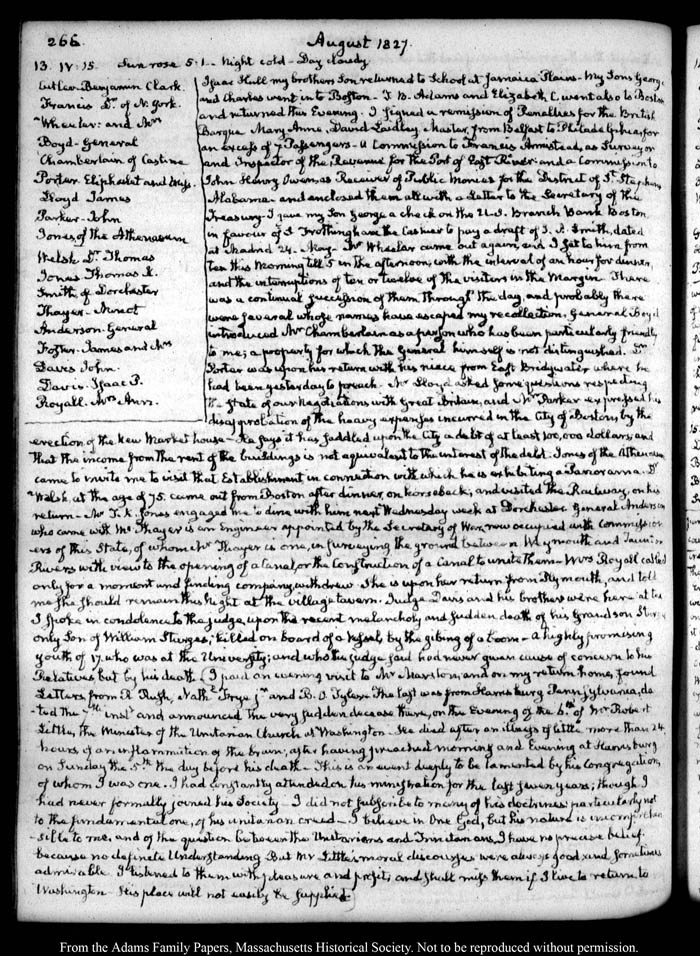 266.
August 1827.
13. IV:15. Sun rose 5:1 - Night cold - Day cloudy
Cutler. Benjamin Clark.
Francis Dr. of N. York.
Wheeler. and Mrs
Boyd - General
Chamberlain of Castine
Porter. Eliphalet and Miss.
Lloyd James
Parker. John
Jones of the Athenaeum
Welsh Dr. Thomas
Jones Thomas K.
Smith of Dorchester
Thayer. Minot
Anderson. General
Foster. James and Mrs
Davis John.
Davis. Isaac P.
Royall. Mrs Ann.
Isaac Hull my brothers Son returned to School at Jamaica Plains - My Sons George
and Charles went in to Boston - T. B. Adams and Elizabeth C. went also to Boston
and returned this Evening. I signed a remission of Penalties for the British
Barque Mary Anne, David Laidley Master, from Belfast to Philadelphia, for
an excess of 7 Passengers - a Commission to Francis Armistead, as Surveyor
and Inspector of the Revenue for the Port of East River and a Commission to
John Henry Owen, as Receiver of Public Monies for the District of St. Stephens
Alabama - and enclosed them all with a Letter to the Secretary of the
Treasury - I gave my Son George a check on the U.S. Branch Bank Boston
in favour of S Frothingham the Cashier to pay a draft of J. A. Smith, dated
at Madrid 24. May - Mr Wheeler came out again, and I sat to him from
ten this Morning till 5 in the afternoon, with the interval of an hour for dinner,
and the interruptions of ten or twelve of the visitors in the Margin. There
was a continual succession of them through the day, and probably there
were several whose names have escaped my recollection. General Boyd
introduced Mr Chamberlain as a person who has been particularly friendly
to me; a property for which the General himself is not distinguished. Dr
Porter was upon his return with his niece from East Bridgwater where he
had been yesterday to preach. Mr Lloyd asked some questions respecting
the State of our Negotiations with Great Britain, and Mr Parker expressed his
disapprobation of the heavy expenses incurred in the City of Boston, by the
erection of the New Market house - He says it has saddled upon the City a debt of at least 500,000 dollars, and
that the income from the rent of the buildings is not equivalent to the interest of the debt. Jones of the Athenaeum
came to invite me to visit that Establishment in connection with which he is exhibiting a Panorama. Dr
Welsh, at the age of 75. came out from Boston after dinner, on horseback, and visited the Railway, on his
return - Mr T. K. Jones engaged me to dine with him next Wednesday week at Dorchester General Anderson
who came with Mr Thayer is an Engineer appointed by the Secretary of War, now occupied with Commission-
ers of this State, of whom Mr Thayer is one, in surveying the ground between Weymouth and Taunton
Rivers with view to the opening of a Canal, or the Construction of a Canal to unite them - Mrs Royall called
only for a moment and finding company, withdrew. She is upon her return from Plymouth, and told
me she should remain this Night at the village tavern. Judge Davis and his brothers were here at tea
I spoke in condolence to the Judge, upon the recent melancholy and sudden death of his Grandson Sturgis
only Son of William Sturges; killed on board of a vessel, by the gibing of a boom - a highly promising
youth of 17. who was at the University; and who the judge said had never given cause of concern to his
Relatives but by his death. I paid an evening visit to Mr Marston, and on my return home, found
Letters from R Rush, Nathl Frye jr and B. O Tyler. The last was from Harrisburg Pennsylvania, da-
-ted the 7th inst and announced the very sudden decease there, on the Evening of the 6th of Mr Robert
Little, the Minister of the Unitarian Church at Washington - He died after an illness of little more than 24.
hours of an inflammation of the brain, after having preached morning and Evening at Harrisburg
on Sunday the 5th the day before his death - This is an event deeply to be lamented by his Congregation,
of whom I was one. I had constantly attended on his ministration for the last seven years; though I
had never formally joined his Society - I did not subscribe to many of his doctrines particularly not
to the fundamental one, of his unitarian creed - I believe in One God, but his nature is incomprehen
-sible to me, and of the question between the Unitarians and Trinitarians, I have no precise belief
because no definite Understanding But Mr Little's moral discourses were always good and sometimes
admirable. I listened to them with pleasure and profit, and shall miss them if I live to return to
Washington - His place will not easily be supplied
From the Adams Family Papers, Massachusetts Historical Society. Not to be reproduced without permission.